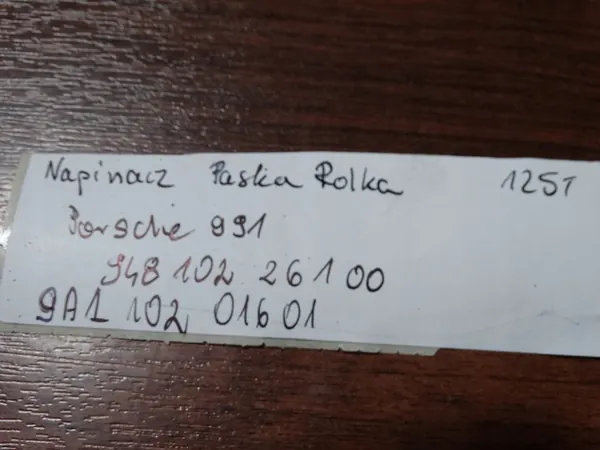 Napinacz Paska Rolka 1251
Porsche 991
948 102 261 00
9A1 102 01601